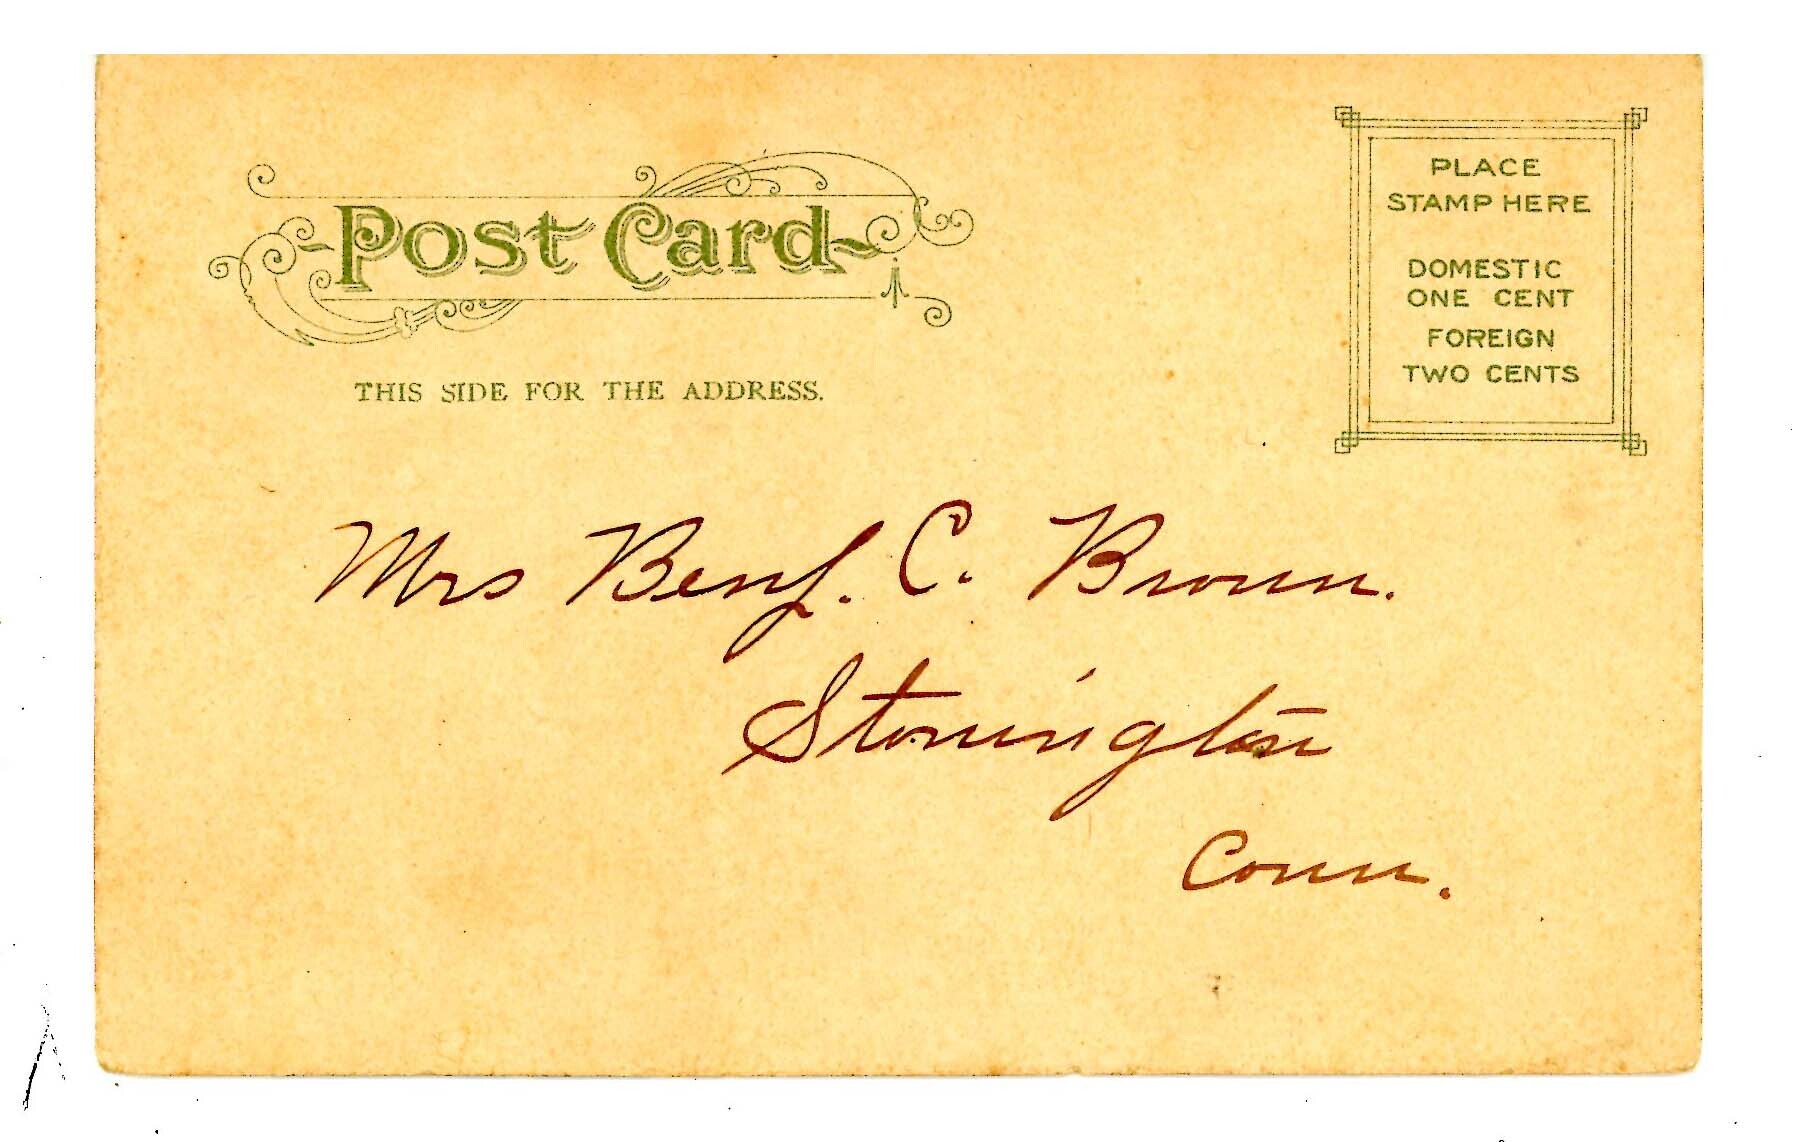 Post Card
THIS SIDE FOR THE ADDRESS.
PLACE
STAMP HERE
DOMESTIC
ONE CENT
FOREIGN
TWO CENTS
Mrs Benj. C. Brown.
Stonington
Conn.